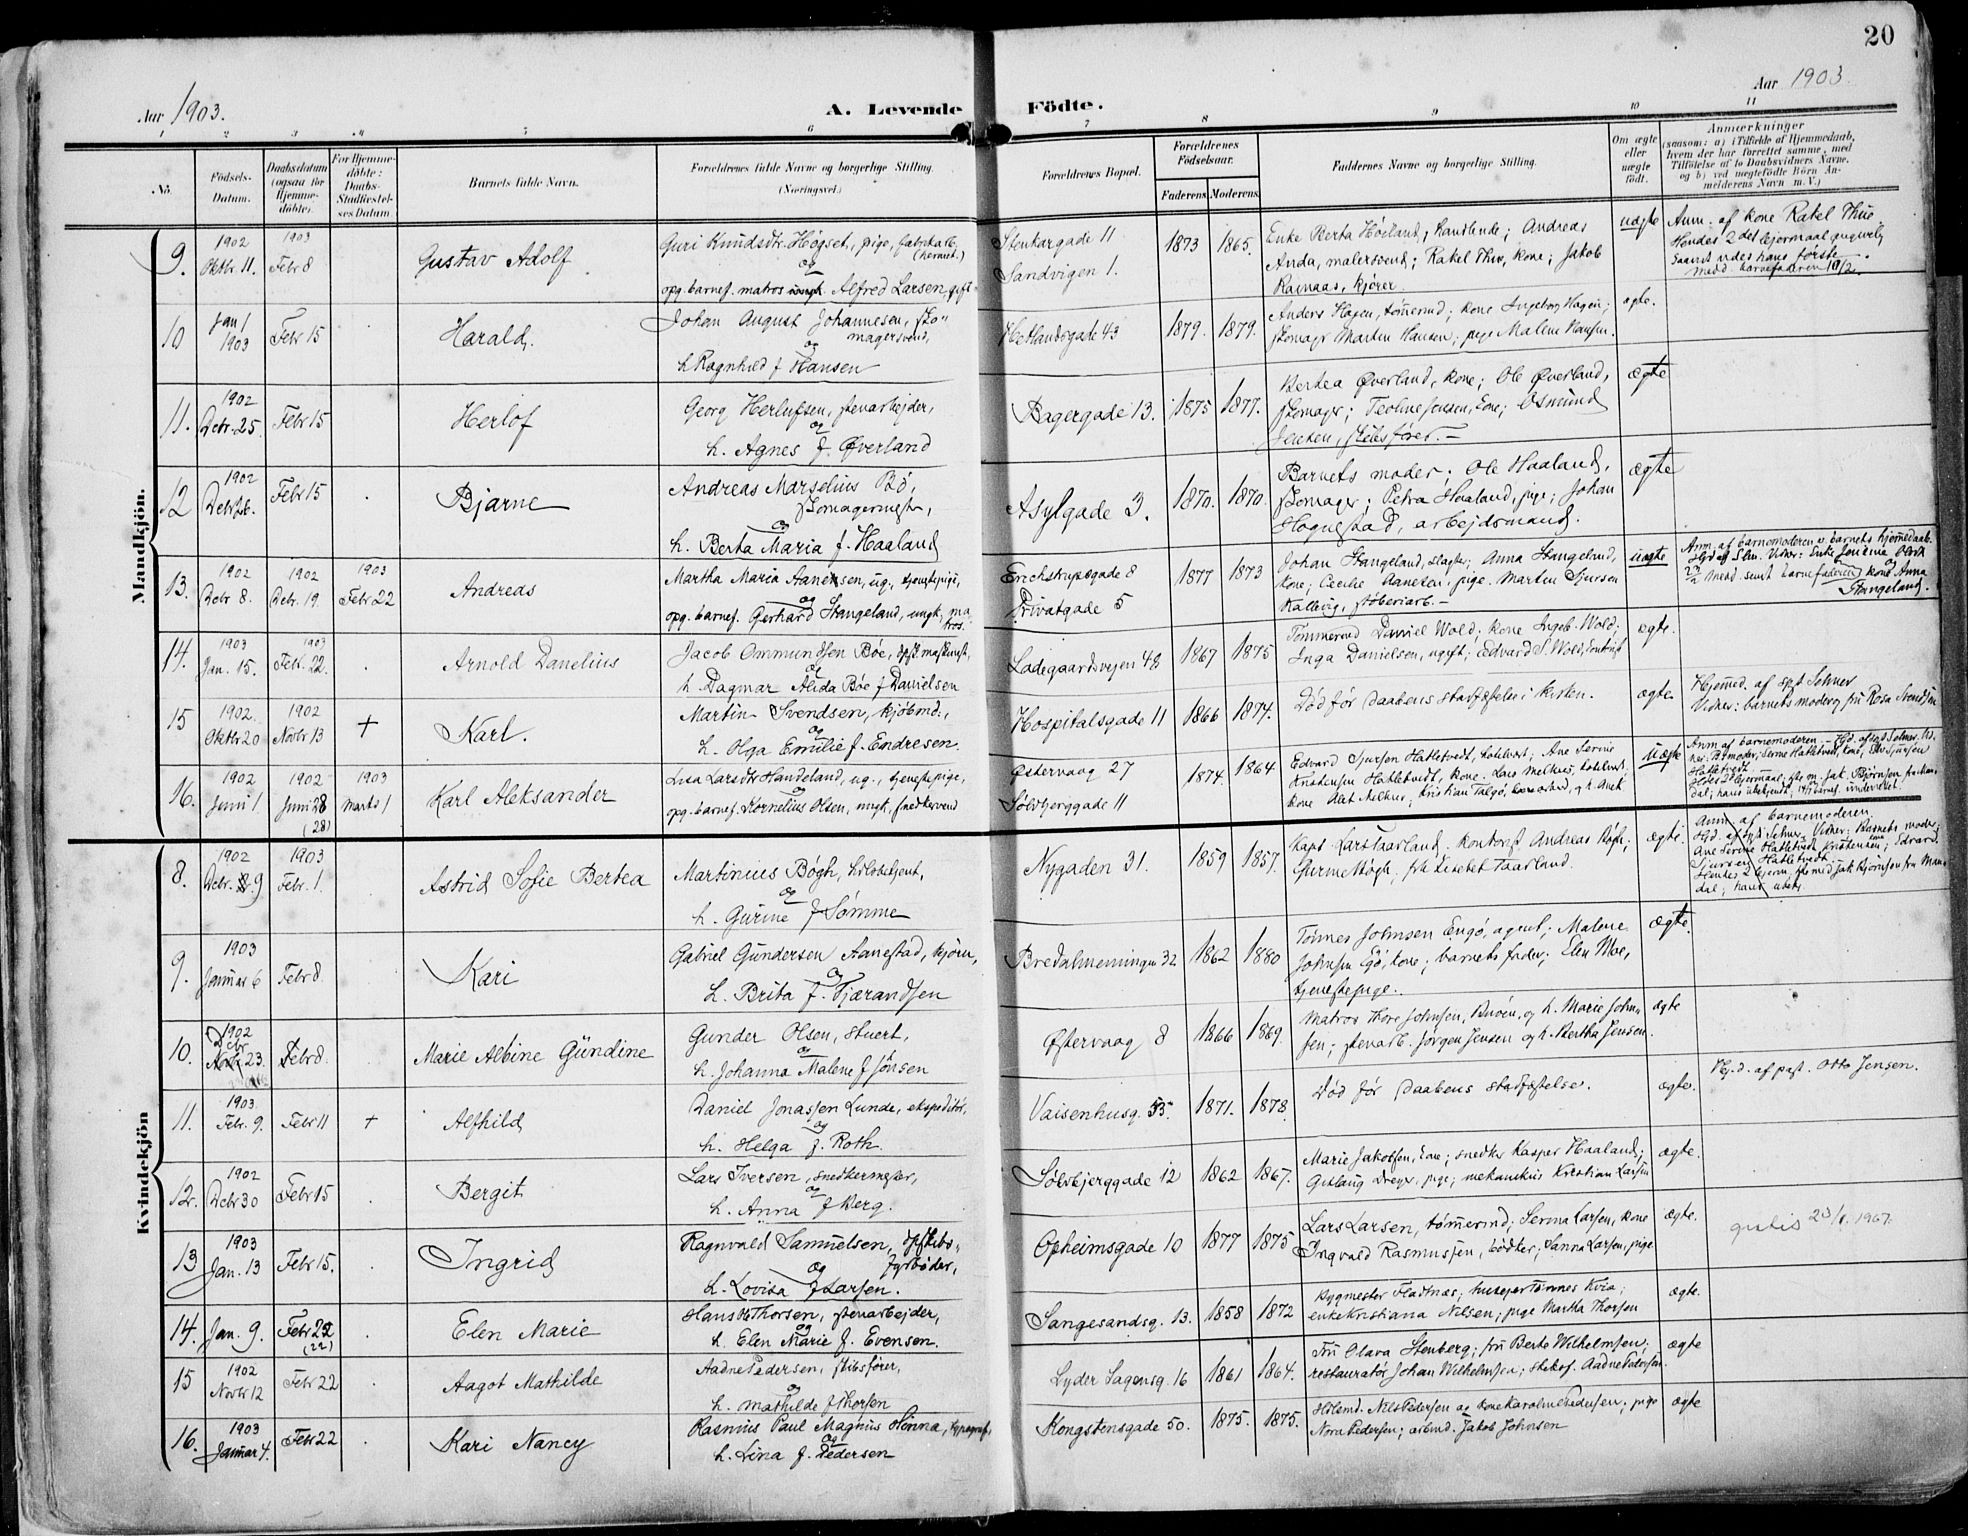 20
Aar 1903.
A. Levende Födte.
Aar 1903.
1 2 3 4 5 6 7 8 9 10 11
No.
Födsels-Datum.
Daabsdatum (ogsaa for Hjemmedöbte).
For Hjemmedöbte: Daabs-Stadfæstelses Datum
Barnets fulde Navn.
Forældrenes fulde Navne og borgerlige Stilling. (Næringsvei.)
Forældrenes Bopæl.
Forældrenes Födselsaar.
Faderens. Moderens.
Faddernes Navne og borgerlige Stilling.
Om ægte eller uægte födt.
Anmærkninger
(saasom: a) i Tilfælde af Hjemmedaab, hvem der har forrettet samme, med Tilföielse af to Daabsvidners Navne, og b) ved uægtefödte Börn Anmelderens Navn m. V.)
Mandkjön.
9. 1902 Oktbr 11. 1903 Febr 8 Gustav Adolf
Guri Knudsdtr. Høgset, pige, fabrikarb. (hermet.)
og
opg. barnef. matros Alfred Larsen, gift
Stenkargade 11
Sandvigen 1.
1873 1865.
Enke Berta Høiland, handlende; Andreas
Anda, malersvend; Rakel Thue, kone; Jakob
Ramaas, kjører.
uægte
Anm. af kone Rakel Thue.
Hendes 2det lejermaal
10 Jan 1 1903 Febr 15 Harald.
Johan August Johannesen, skomagersvend,
og
h. Ragnhild f. Hansen
Hetlandsgade 43 1879. 1879.
Anders Hagen, tømmermd; kone Ingeborg Hagen;
skomagr Martin Hansen; pige Malene Hansen.
ægte.
11. 1902 Debr. 25. Febr 15 Herlof
Georg Herlufsen, stenarbejder,
og
h. Agnes f. Øverland
Bagergade 13. 1875 1877.
Bertea Øverland, kone; Ole Øverland,
skomager; Teoline Jensen, kone; Osmund
Jensen, skibsfører.
ægte
12 1902 Debr 26. Febr 15 Bjarne
Andreas Marselius Bø,
skomagermester,
og
h. Berta Maria f. Haaland
Asylgade 3. 1870. 1870.
Barnets moder; Ole Haaland,
skomager; Petra Haaland, pige; Johan
Hognestad, arbejdsmand.
ægte
13. 1902 Debr 8. 1902 Debr. 19. 1903 Febr 22 Andreas
Martha Maria Aanensen, ug., tjenestepige,
og
opg. barnef. Gerhard Stangeland, ungk., matros.
Erichstrupsgade 8
Privatgade 5
1877 1873
Johan Stangeland, slagter; Anna Stangeland,
kone; Cecilie Aanesen, pige. Martin Sjursen
Kallevig, støberiarb.
uægte
Anm. af barnemoderen
Stangeland.
14. 1903 Jan. 15. 1903 Febr. 22. Arnold Danelius
Jacob Ommundsen Bøe, dpsk. maskinist,
og
h. Dagmar Alida Bøe f. Danielsen
Ladegaardsvejen 48 1867 1875
Tømmermd Daniel Wold; kone Ingeb. Wold;
Inga Danielsen, ugift; Edvard S. Wold, kontorist
ægte.
15 1902. Oktbr 20 1902 Novbr 13 + Karl.
Martin Svendsen, kjøbmd.,
og
h. Olga Emilie f. Endresen.
Hospitalsgade 11 1866 1874.
Død før daabens stadfæstelse i kirken.
ægte.
Hjemmed. af spt Selmer
Vidner: barnets moder og fru Rosa Svendsen
16. 1902 Juni 1 1902 Juni 28 (28) 1903 Marts 1 Karl Aleksander
Lisa Larsdtr Handeland, ug., tjenestepige,
og
opg. barnef. Kornelius Olsen, ungk., snedkersvend
Østervaag 27
Sølvbjerggade 11
1874. 1864
Edvard Sjursen Hatletvedt, hotelvert; Ane Serine
Knutensen Hatletvedt, kone. Lars Melkus, hotelvert,
kone Alet Melkus; Kristian Talgø
uægte
Anm. af barnemoderen.
Kvindekjön
8. 1902 Debr. 9 1903 Febr. 1. Astrid Sofie Bertea
Martinius Bögh, toldbetjent,
og
h. Gurine f. Sømme
Nygaden 31. 1859 1857.
Kapt. Lars Taarland, kontorist Andreas Bögh;
Gurine Bögh, frk. Lisebet Taarland.
ægte.
Anm. af barnemoderen.
9. 1903 Januar 6 Febr 8 Kari
Gabriel Gundersen Aanestad, kjører,
og
h. Brita f. Tjærandsen
Bredalmenningen 32 1862 1880
Tønnes Johnsen Engø, agent; Malene
Johnsen Egø, kone; barnets fader; Elen Moe,
tjenestepige.
ægte.
10. 1902 Debr 23. Febr 8. Marie Albine Gündine
Gunder Olsen, stuert,
og
h. Johanna Malene f. Jönsen
Østervaag 8 1866 1869.
Matros Thore Johnsen, Buøen, og h. Marie Johnsen;
stenarb. Jørgen Jensen og h. Bertha Jensen.
ægte
11. 1903 Febr. 9. Febr 11 + Alfhild
Daniel Jonassen Lunde, ekspeditør,
og
h. Helga f. Roth.
Vaisenhusg. 53. 1871. 1873
Død før daabens stadfæstelse.
ægte.
Hj.d. af past. Otto Jensen.
12. 1902 Debr 30 Febr 15 Bergit
Lars Iversen, snedkermester,
og
h. Anna f. Berg.
Sølvbjerggade 12 1862 1867.
Marie Jakobsen, kone; snedker Kasper Haaland;
Gislaug Dreyer, pige; mekanikus Kristian Larsen
ægte.
13 1903 Jan. 13 Febr 15. Ingrid
Ragnvald Samuelsen, dpskibsfyrbøder,
og
h. Lovisa f. Larsen.
Opheimsgade 10 1877 1875
Lars Larsen, tømmermd; Serina Larsen, kone
Ingvald Rasmussen, bødker; Sanna Larsen, pige
ægte.
gratis 23/1 1967.
14. Jan. 9. Febr 22 (22) Elen Marie
Hans Thorsen, stenarbejder,
og
h. Elen Marie f. Evensen.
Sangesandsg. 13. 1858 1872
Bygmester Fladnæs; husejer Tønnes Kvia;
enke Kristiana Nilsen; pige Martha Thorsen
ægte.
15 1902 Novbr 12 Febr 22 Aagot Mathilde
Aadne Pedersen, skibsfører,
og
h. Mathilde f. Thorsen
Lyder Sagensg. 16 1861 1864.
Fru Olava Stenberg; fru Berte Wilhelmsen;
restauratør Johan Wilhelmsen; skibsf. Aadne Pedersen.
ægte
16. 1903 Januar 4. Febr 22 Kari Nancy
Rasmus Paul Magnus Hinna, typograf,
og
h. Lina f. Pedersen
Kongstensgade 50. 1875. 1875.
Nils Pedersen og kone Karoline Pedersen; pige
Nora Pedersen; arbmd. Jakob Johnsen
ægte